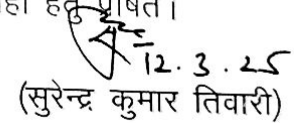 हेतु प्रेषित।
12.3.25
(सुरेन्द्र कुमार तिवारी)